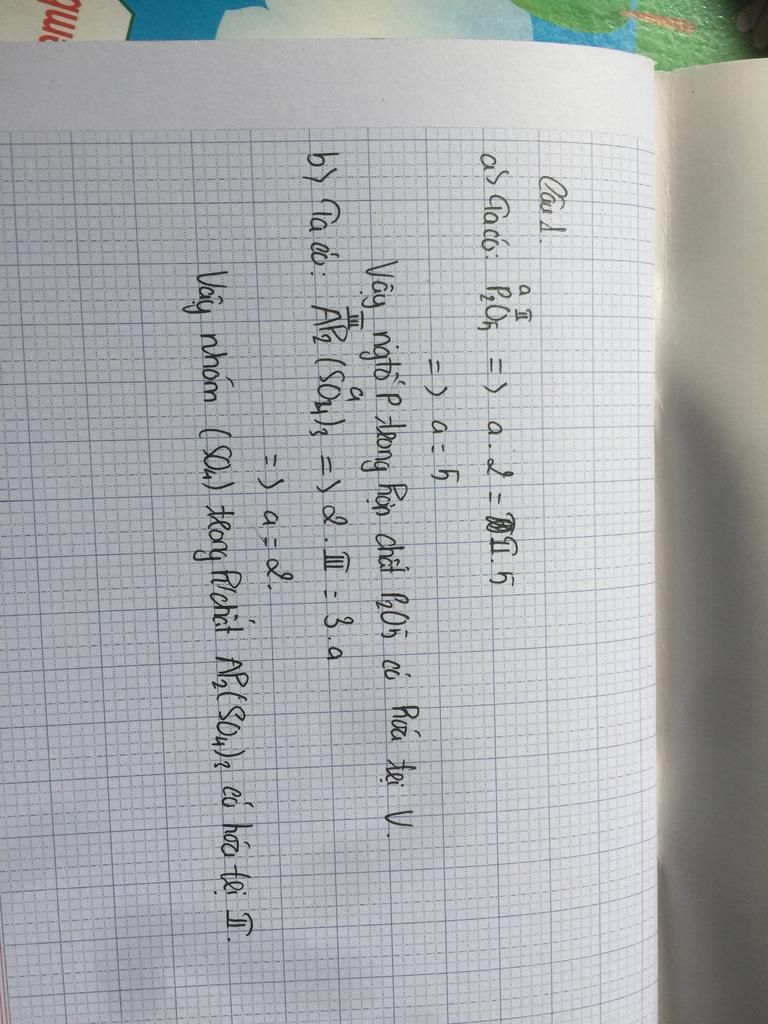 Câu 1.
a) Ta có: P₂O₅ => a. 2 = II. 5
a II
=> a = 5
Vậy ngtố P trong hợp chất P₂O₅ có hoá trị V.
b) Ta có: Al₂(SO₄)₃ => 2. III = 3. a
III a
=> a = 2.
Vậy nhóm (SO₄) trong h/chất Al₂(SO₄)₃ có hoá trị II.